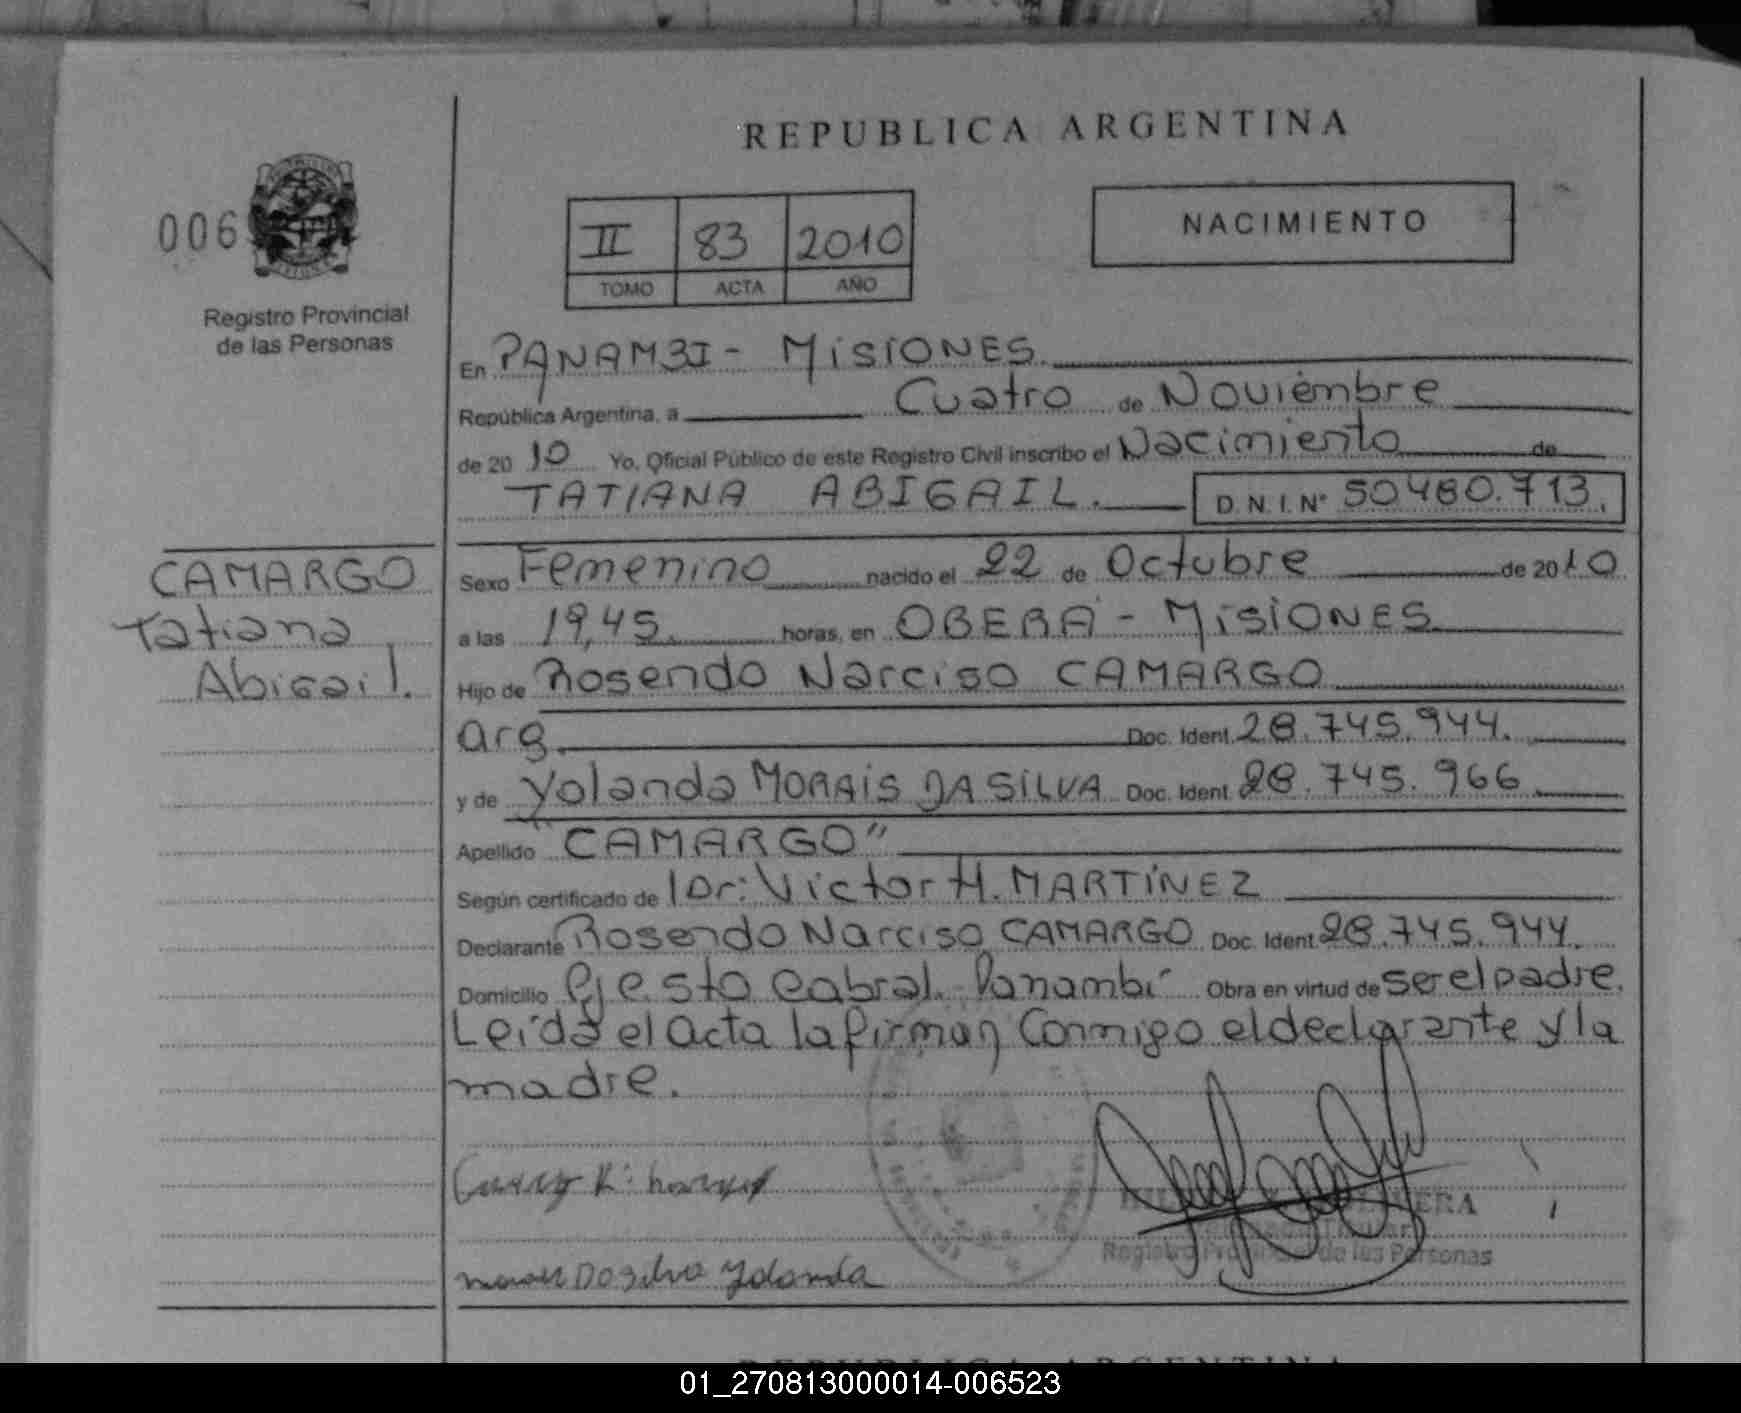 REPUBLICA ARGENTINA
006
II 83 2010
TOMO ACTA AÑO
NACIMIENTO
Registro Provincial
de las Personas
En PANAMBI - MISIONES
República Argentina, a Cuatro de Noviémbre
de 20 10 Yo, Oficial Público de este Registro Civil inscribo el Nacimiento de
TATIANA ABIGAIL. D.N.I.N° 50480.713.
CAMARGO
Tatiana
Abigail.
Sexo Femenino nacido el 22 de Octubre de 2010
a las 19,45 horas, en OBERÁ - MISIONES
Hijo de Rosendo Narciso CAMARGO
arg. Doc. Ident. 28.745.944.
y de Yolanda MORAIS DA SILVA Doc. Ident. 28.745.966
Apellido "CAMARGO"
Según certificado de Dr: Victor H. MARTÍNEZ
Declarante Rosendo Narciso CAMARGO Doc. Ident. 28.745.944.
Domicilio Pje. Sto Cabral. Panambí Obra en virtud de ser el padre.
Leída el acta la firman Conmigo el declarante y la
madre.
Registro Provincial de las Personas
Da Silva Yolanda
REPUBLICA ARGENTINA
01_270813000014-006523